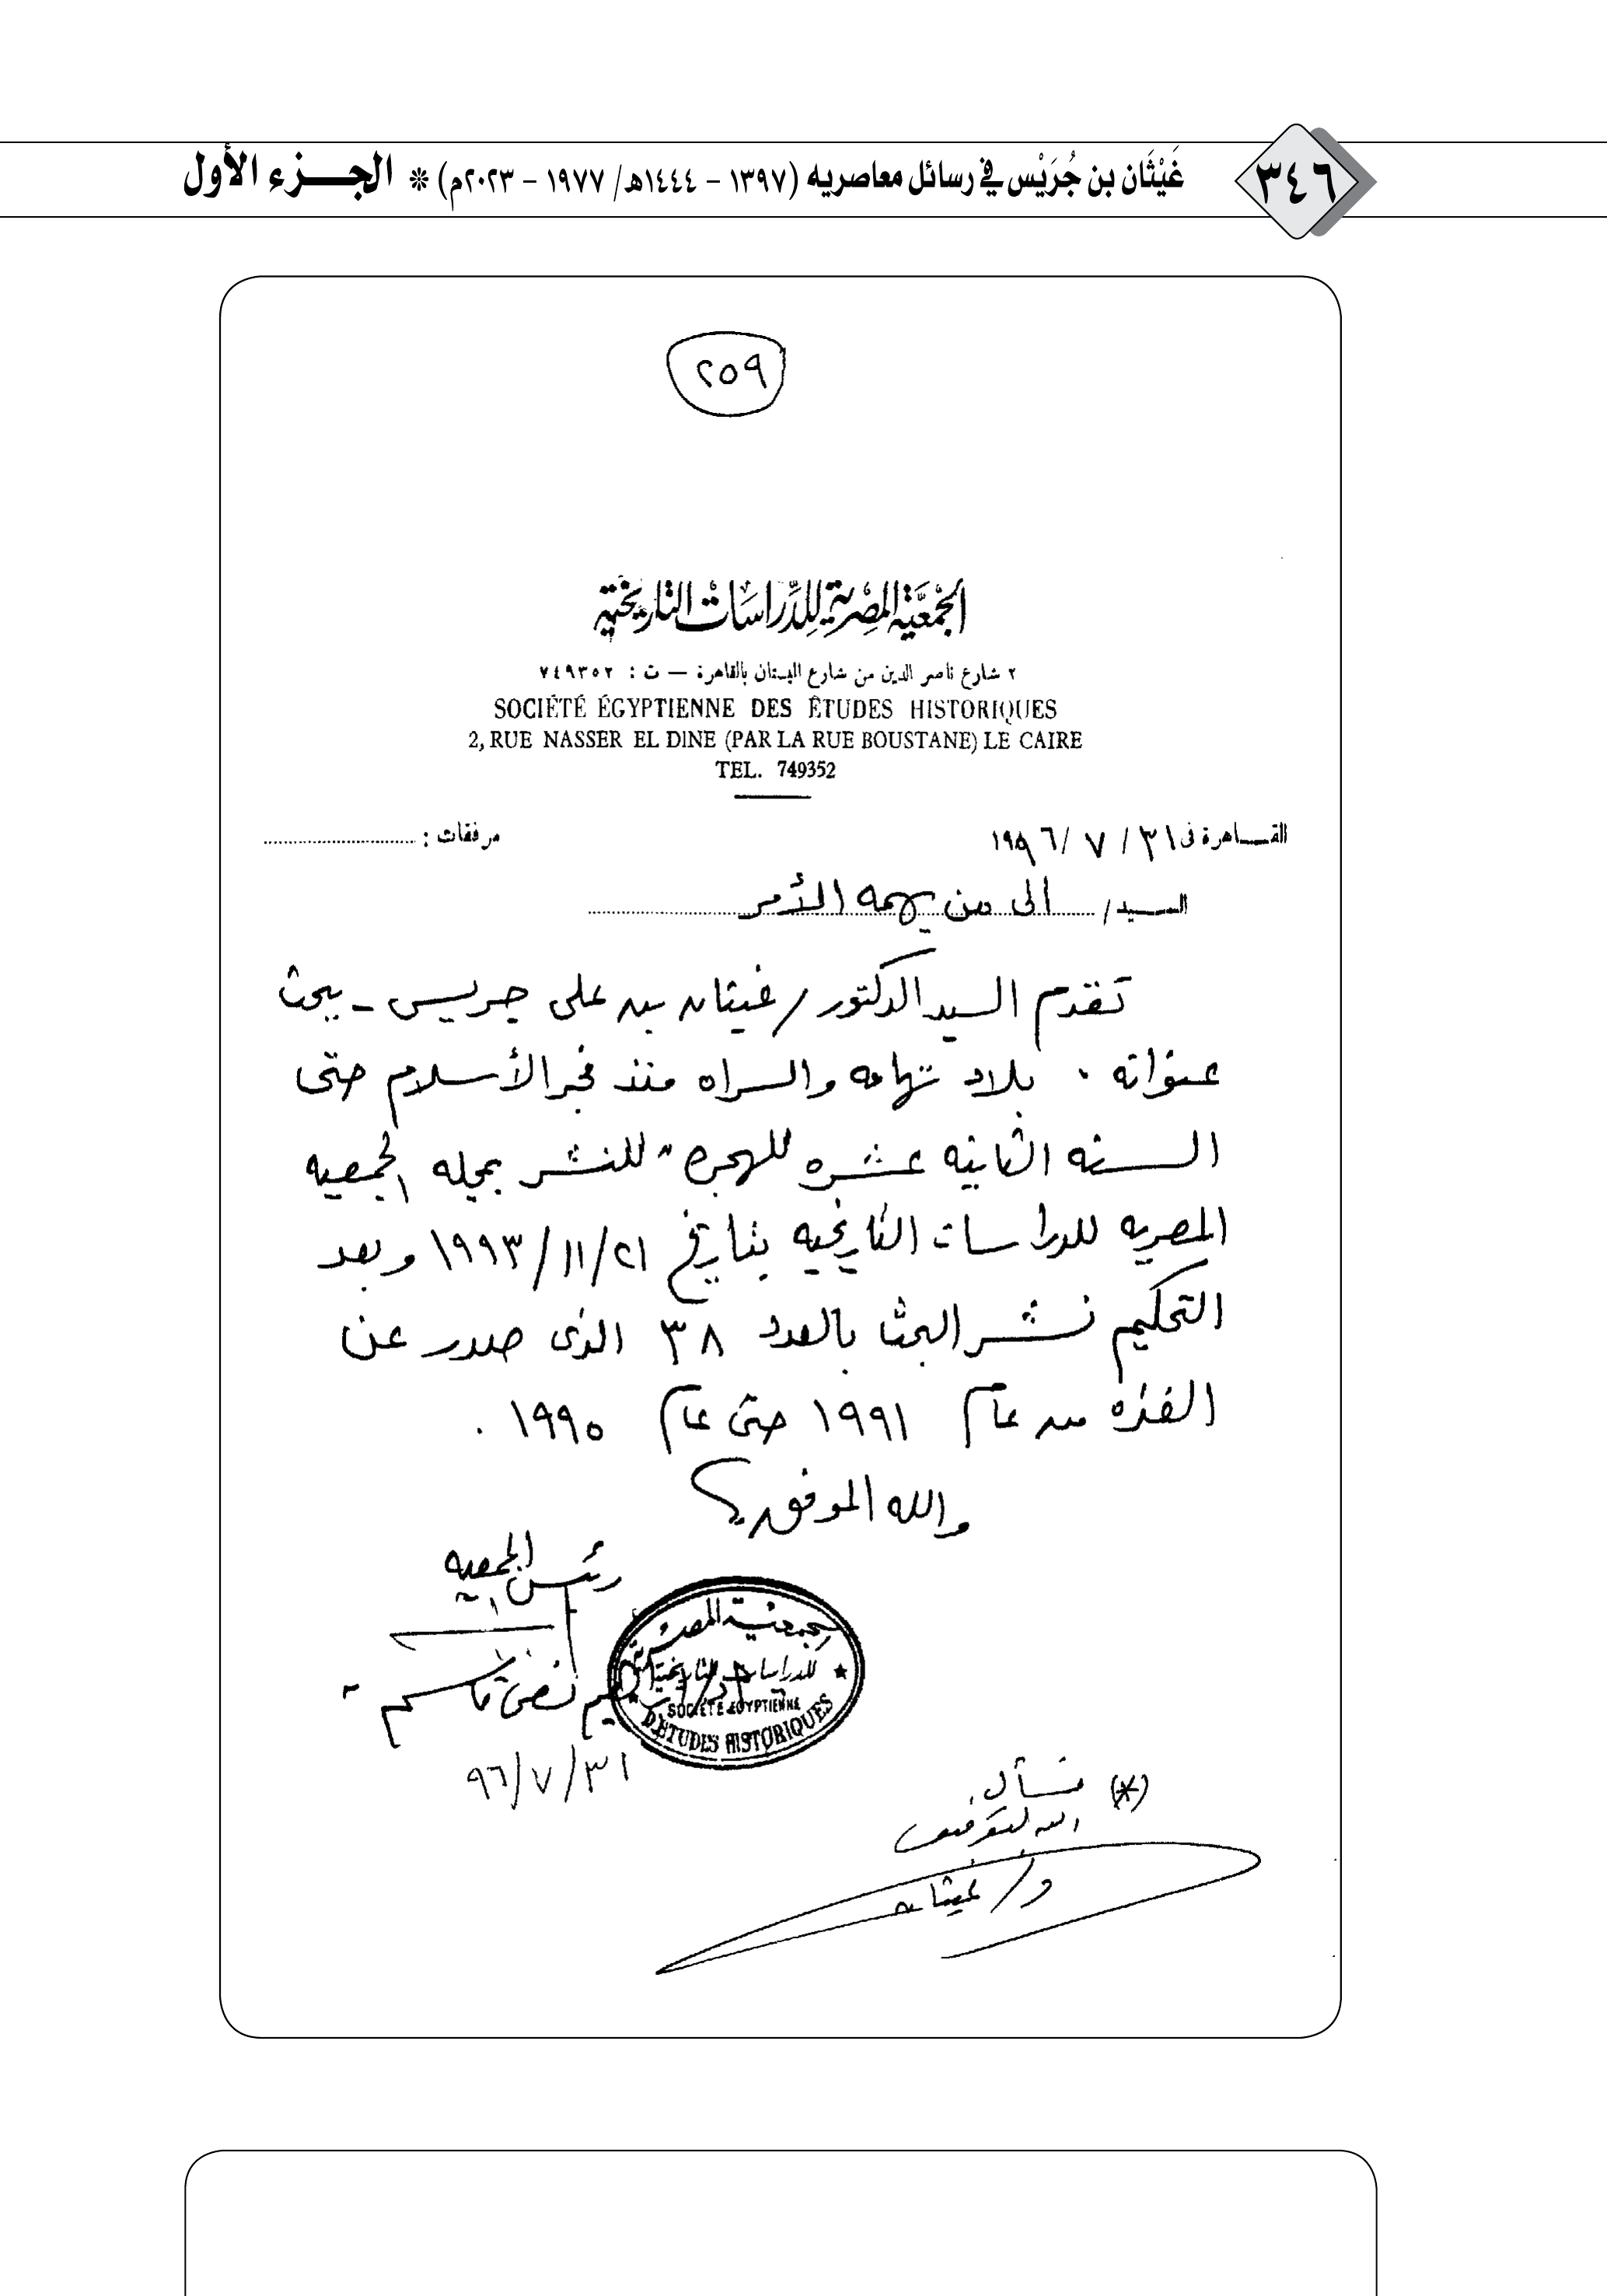 ٣٤٦
غَيْثَان بن جُرَيْس في رسائل معاصريه (١٣٩٧ - ١٤٤٤هـ/ ١٩٧٧ - ٢٠٢٣م) ❊ الجـــزء الأول
٢٥٩
الجمعيَّة المصرية للدِّراسَات التاريخيّة
٢ شارع ناصر الدين من شارع البستان بالقاهرة — ت : ٧٤٩٣٥٢
SOCIÉTÉ ÉGYPTIENNE DES ÉTUDES HISTORIQUES
2, RUE NASSER EL DINE (PAR LA RUE BOUSTANE) LE CAIRE
TEL. 749352
القـــاهرة في ٣١ / ٧ / ١٩٩٦
مرفقات :
الســـيد / الى من يهمه الأمر
تقدم السيد الدكتور / غيثان بن على جريس - ببحث
عنوانه " بلاد تهامه والسراه منذ فجر الأسلام حتى
السنه الثانيه عشره للهجره " للنشر بمجله الجمعيه
المصريه للدراسات التاريخيه بتاريخ ٢١/١١/١٩٩٣ وبعد
التحكيم نشر البحث بالعدد ٣٨ الذى صدر عن
الفتره من عام ١٩٩١ حتى عام ١٩٩٥ .
والله الموفق
رئيس الجمعيه
قاسم
٣١/٧/٩٦
الجمعية المصرية
للدراسات التاريخية
SOCIÉTÉ EGYPTIENNE
D'ETUDES HISTORIQUES
(*) نسأل
الله التوفيق
د/ غيثان